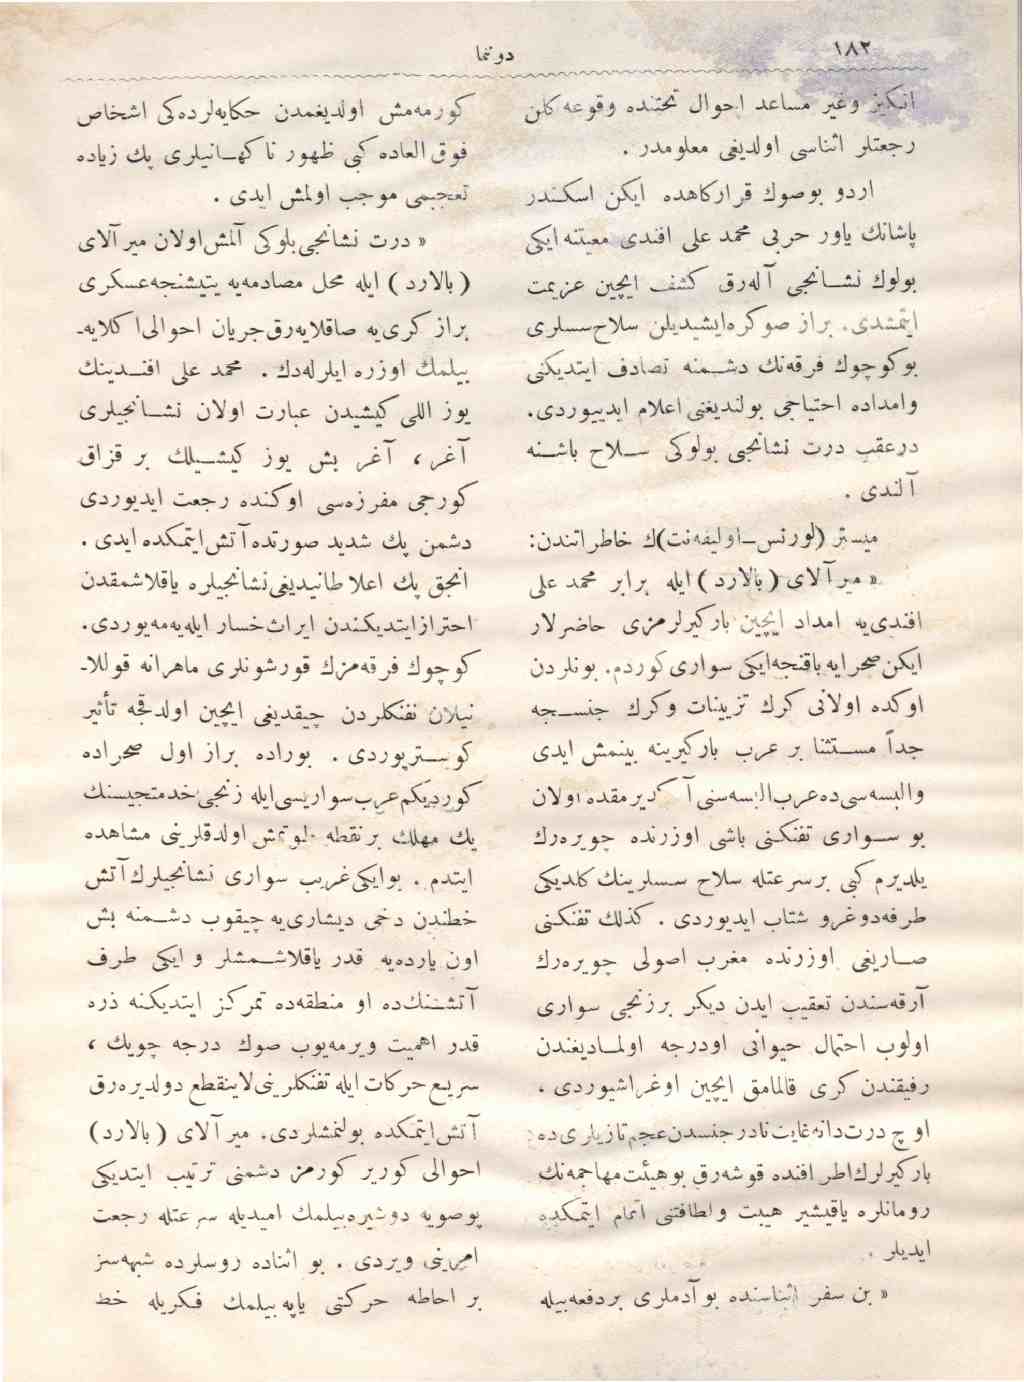 ١٨٢
دوننما
انكیز وغیر مساعد احوال تحتنده وقوعه كلن
رجعتلر اثناسی اولدیغی معلومدر .
اردو بوصوك قرارگاهده ایكن اسكندر
پاشانك یاور حربی محمد علی افندی معیتنه ایكی
بولوك نشانجی آله‌رق كشف ایچین عزیمت
ایتمشدی. براز صوكره ایشیدیلن سلاح سسلری
بو كوچوك فرقه‌نك دشمنه تصادف ایتدیكنی
وامداده احتیاجی بولندیغنی اعلام ایدییوردی.
درعقب درت نشانجی بولوكی سلاح باشنه
آلندی .
میستر (لورنس_اولیفه‌نت)ك خاطراتندن:
« میرآلای ( بالارد ) ایله برابر محمد علی
افندی‌یه امداد ایچین باركیرلرمزی حاضرلار
ایكن صحرایه باقنجه ایكی سواری كوردم. بونلردن
اوكده اولانی كرك تزیینات وكرك جنسجه
جداً مستثنا بر عرب باركیرینه بینمش ایدی
والبسه‌سی ده عرب البسه‌سنی آكدیرمقده اولان
بو سواری تفنكنی باشی اوزرنده چویره‌رك
یلدیرم كبی برسرعتله سلاح سسلرینك كلدیكی
طرفه دوغرو شتاب ایدیوردی . كذلك تفنكنی
صاریغی اوزرنده مغرب اصولی چویره‌رك
آرقه‌سندن تعقیب ایدن دیكر برزنجی سواری
اولوب احتمال حیوانی اودرجه اولمادیغندن
رفیقندن كری قالمامق ایچین اوغراشیوردی .
اوچ درت دانه غایت نادر جنسدن عجم تازیلری ده
باركیرلرك اطرافنده قوشه‌رق بو هیئت مهاجمه‌نك
رومانلره یاقیشیر هیبت ولطافتنی اتمام ایتمكده
ایدیلر .
« بن سفر اثناسنده بو آدملری بردفعه بیله
كورمه‌مش اولدیغمدن حكایه‌لرده‌كی اشخاص
فوق العاده كبی ظهور ناكهانیلری پك زیاده
تعجبمی موجب اولمش ایدی .
« درت نشانجی بلوكی آلمش اولان میرآلای
( بالارد ) ایله محل مصادمه‌یه یتیشنجه عسكری
براز كری‌یه صاقلایه‌رق جریان احوالی اكلایه‌ـ
بیلمك اوزره ایلرله‌دك . محمد علی افندینك
یوز اللی كیشیدن عبارت اولان نشانجیلری
آغر ، آغر بش یوز كیشیلك بر قزاق
كورجی مفرزه‌سی اوكنده رجعت ایدیوردی
دشمن پك شدید صورتده آتش ایتمكده ایدی .
انجق پك اعلا طانیدیغی نشانجیلره یاقلاشمقدن
احتراز ایتدیكندن ایراث خسار ایله‌یه‌مه‌یوردی.
كوچوك فرقه‌مزك قورشونلری ماهرانه قوللاـ
نیلان تفنكلردن چیقدیغی ایچین اولدقجه تأثیر
كوستریوردی . بوراده براز اول صحراده
كوردیكم عرب سواریسی ایله زنجی خدمتجیسنك
پك مهلك برنقطه طوتمش اولدقلرینی مشاهده
ایتدم . بو ایكی غریب سواری نشانجیلرك آتش
خطندن دخی دیشاری‌یه چیقوب دشمنه بش
اون یارده‌یه قدر یاقلاشمشلر و ایكی طرف
آتشنك ده او منطقه‌ده تمركز ایتدیكنه ذره
قدر اهمیت ویرمه‌یوب صوك درجه چویك ،
سریع حركات ایله تفنكلرینی لاینقطع دولدیره‌رق
آتش ایتمكده بولنمشلردی. میرآلای ( بالارد)
احوالی كوریر كورمز دشمنی ترتیب ایتدیكی
پوصویه دوشیره‌بیلمك امیدیله سرعتله رجعت
امرینی ویردی . بو اثناده روسلرده شبهه‌سز
بر احاطه حركتی یاپه‌بیلمك فكریله خط